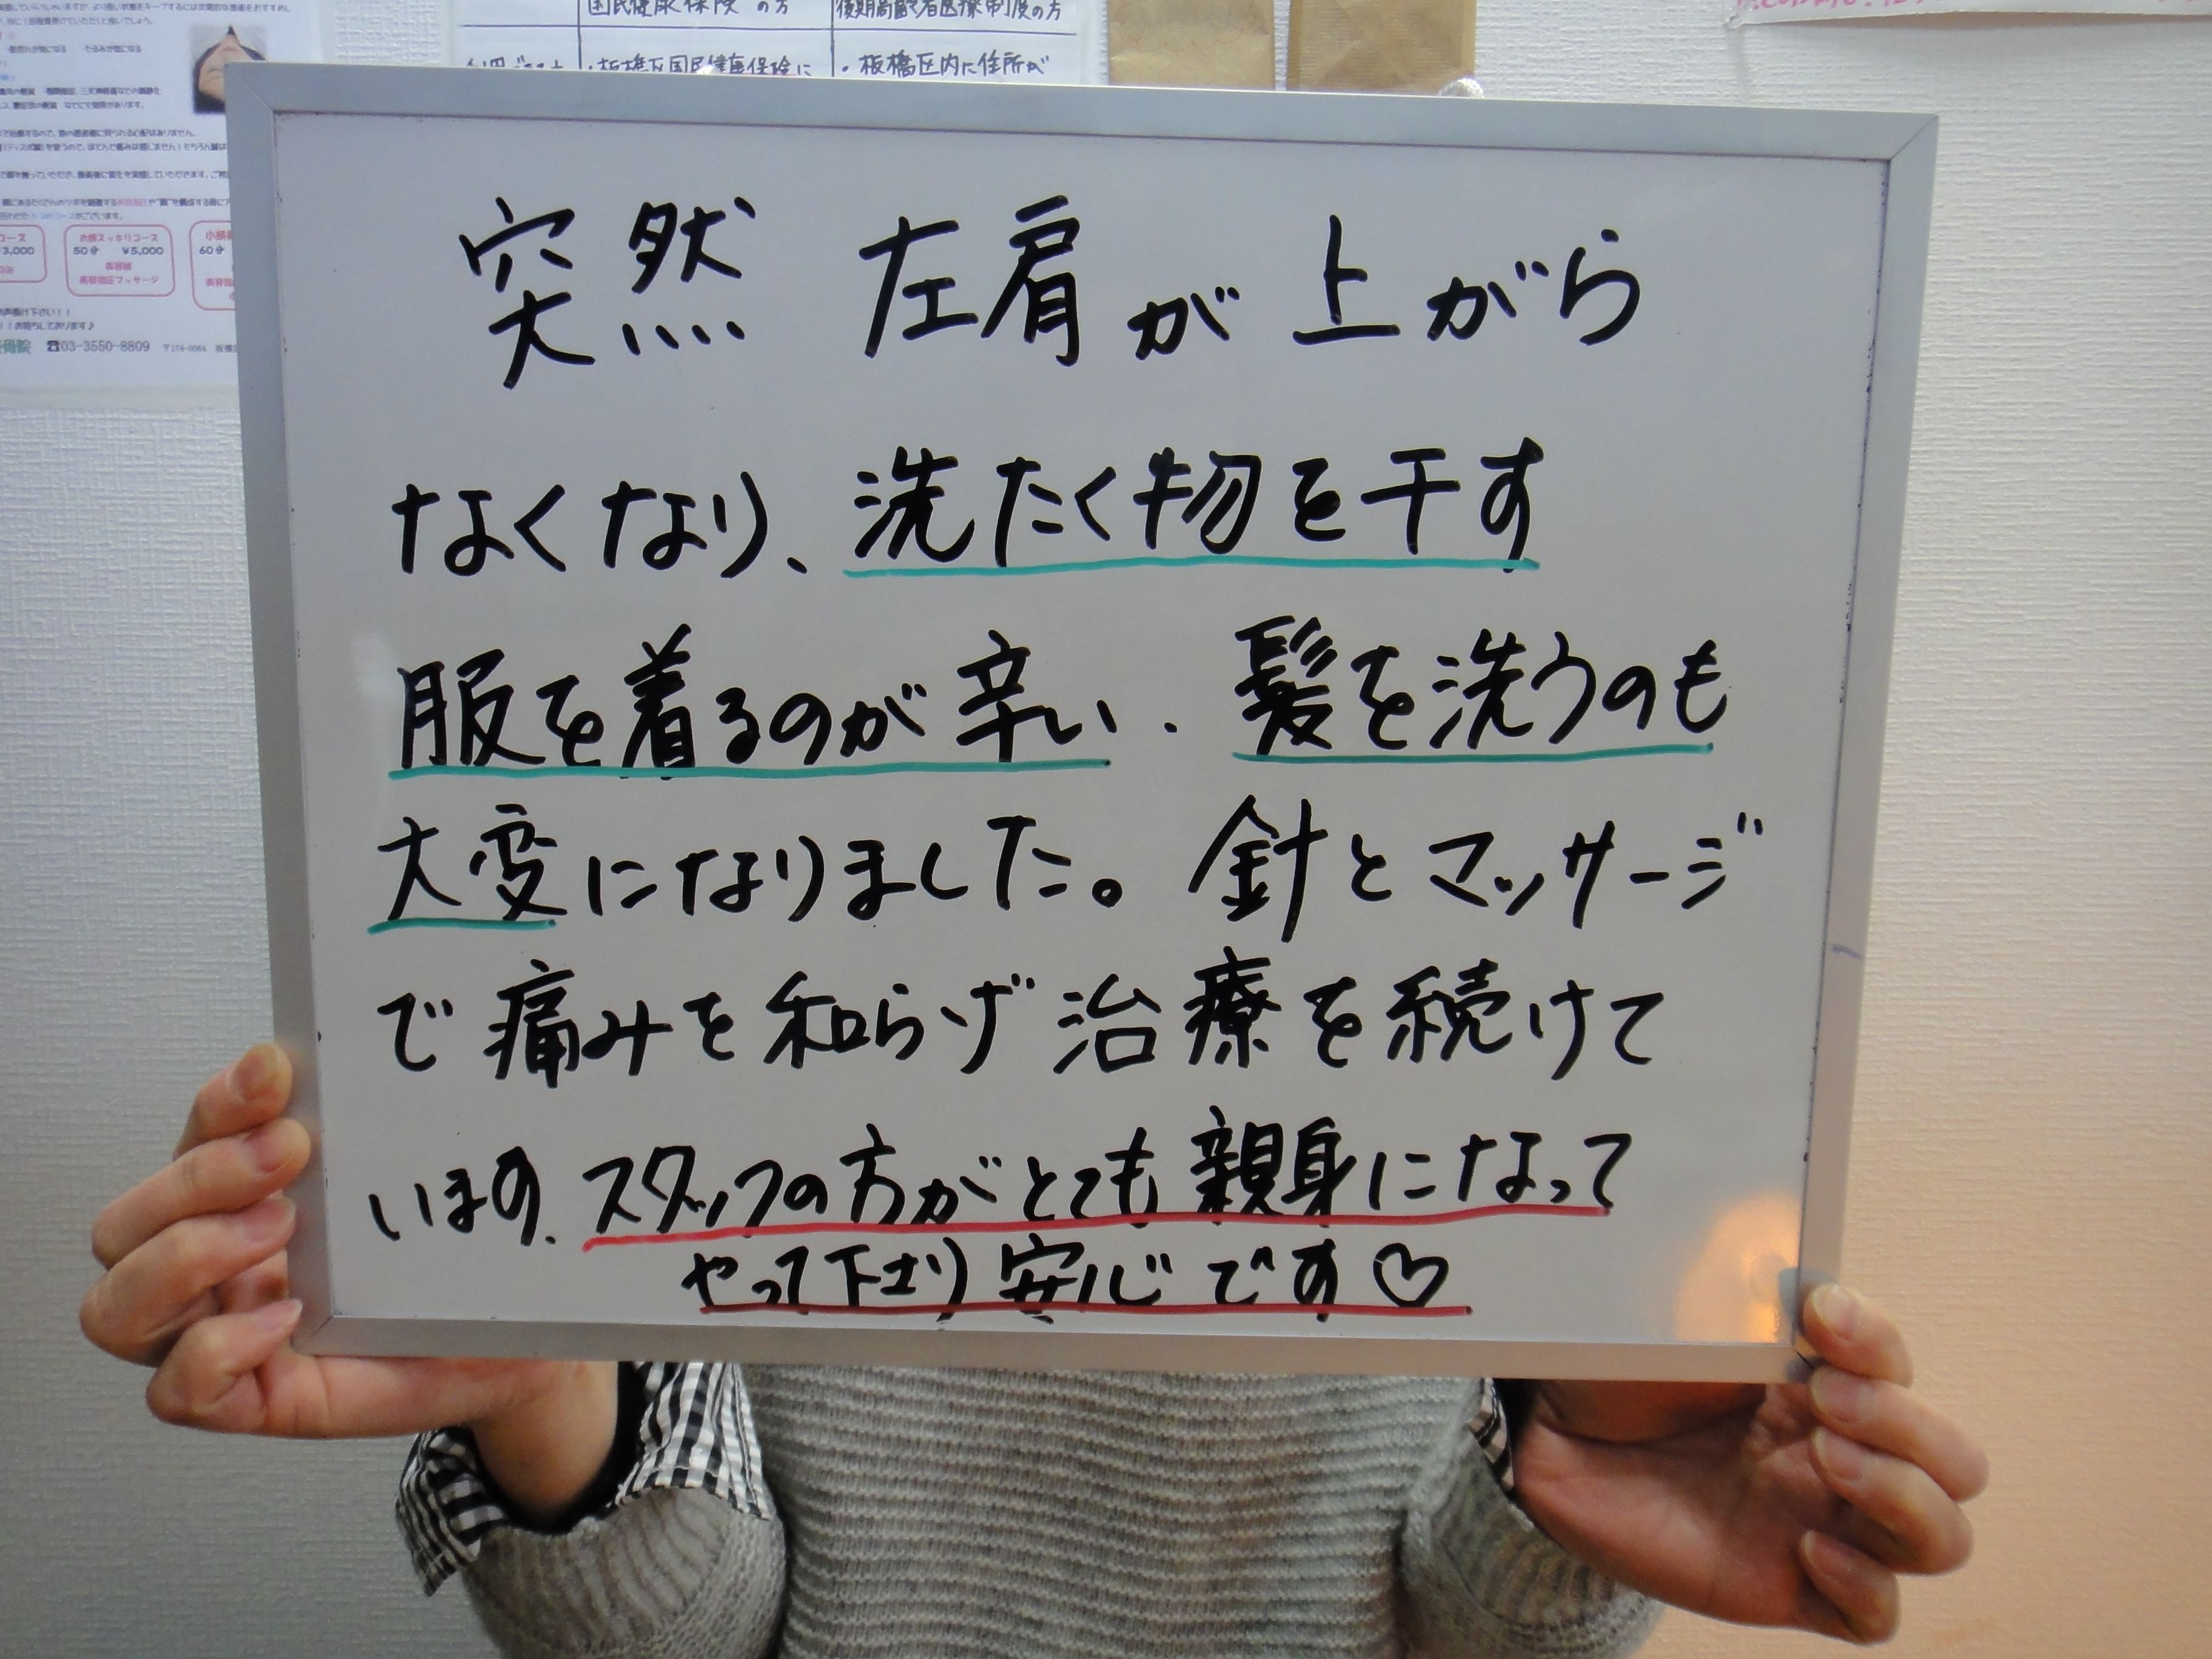 国民健康保険の方
後期高齢者医療制度の方
・板橋区国民健康保険に
・板橋区内に住所が
突然 左肩が上がら
なくなり、洗たく物を干す
服を着るのが辛い・髪を洗うのも
大変になりました。針とマッサージ
で痛みを和らげ治療を続けて
います。スタッフの方がとても親身になって
やって下さり安心です♡
¥3,000
お顔スッキリコース
50分 ¥5,000
美容鍼
美容指圧マッサージ
60分
☎03-3550-8809